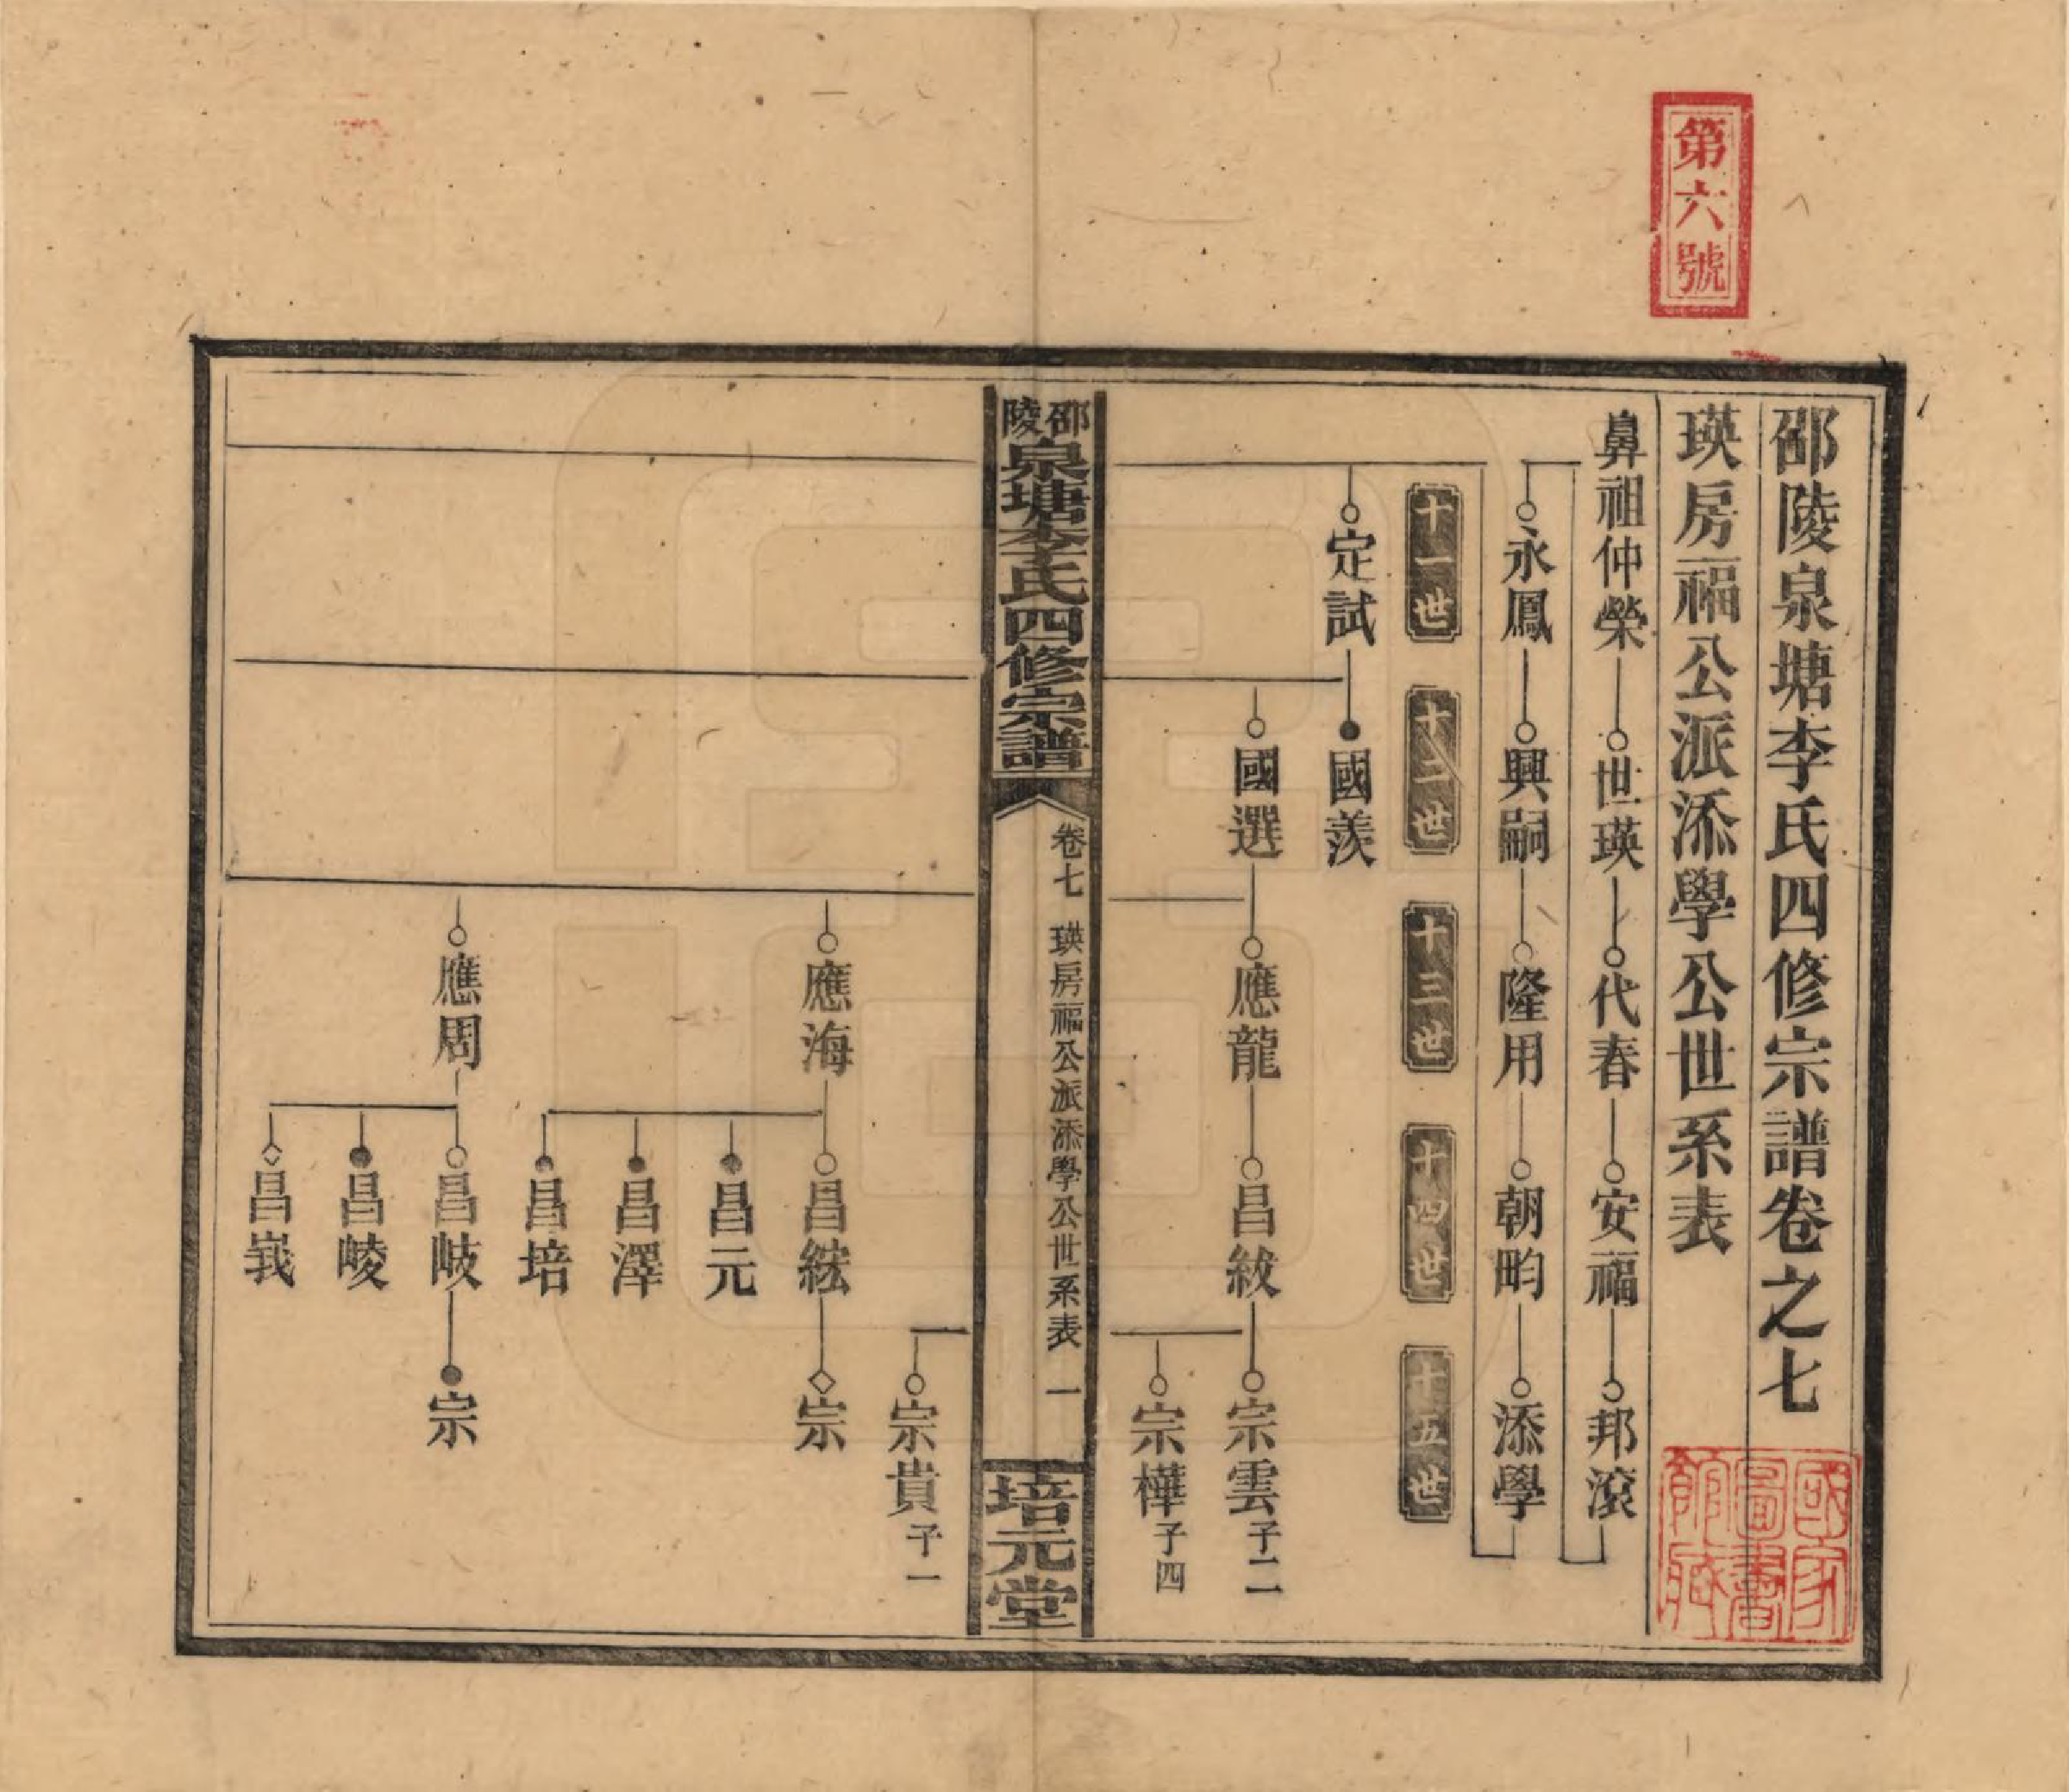 第六號
邵陵泉塘李氏四修宗譜卷之七
瑛房福公派添學公世系表
鼻祖仲榮 世瑛 代春 安福 邦滾
永鳳 興嗣 隆用 朝畇 添學
十一世 十二世 十三世 十四世 十五世
定試 國羨
國選 應龍 昌紱 宗雲 子二
宗樺 子四
邵陵泉塘李氏四修宗譜 卷七 瑛房福公派添學公世系表 一 培元堂
宗貴 子一
應海 昌綋 宗
昌元
昌澤
昌培
應周 昌岐 宗
昌崚
昌峩
國家圖書館藏